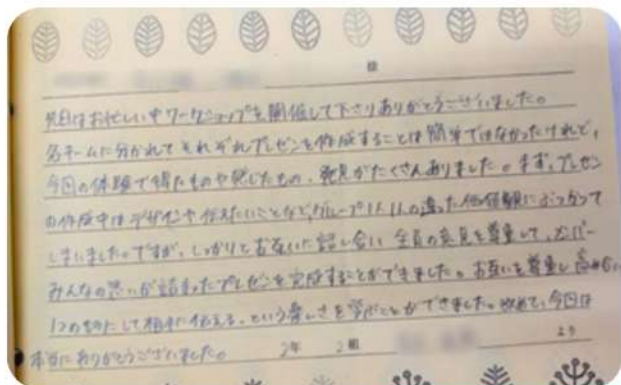 様
先日はお忙しい中ワークショップを開催して下さりありがとうございました。
各チームに分かれてそれぞれプレゼンを作成することは簡単ではなかったけれど、
今回の体験で得たものや感じたもの、発見がたくさんありました。まず、プレゼン
の作成中はデザインや伝えたいことなど、グループ1人1人の違った価値観にぶつかって
しまいました。ですが、しっかりとお互いに話し合い全員の意見を尊重して、メンバー
みんなの思いが詰まったプレゼンを完成することができました。お互いを尊重し高め合い
1つのものにして相手に伝える、という難しさを学ぶことができました。改めて、今回は
本当にありがとうございました。 2年 2組 より